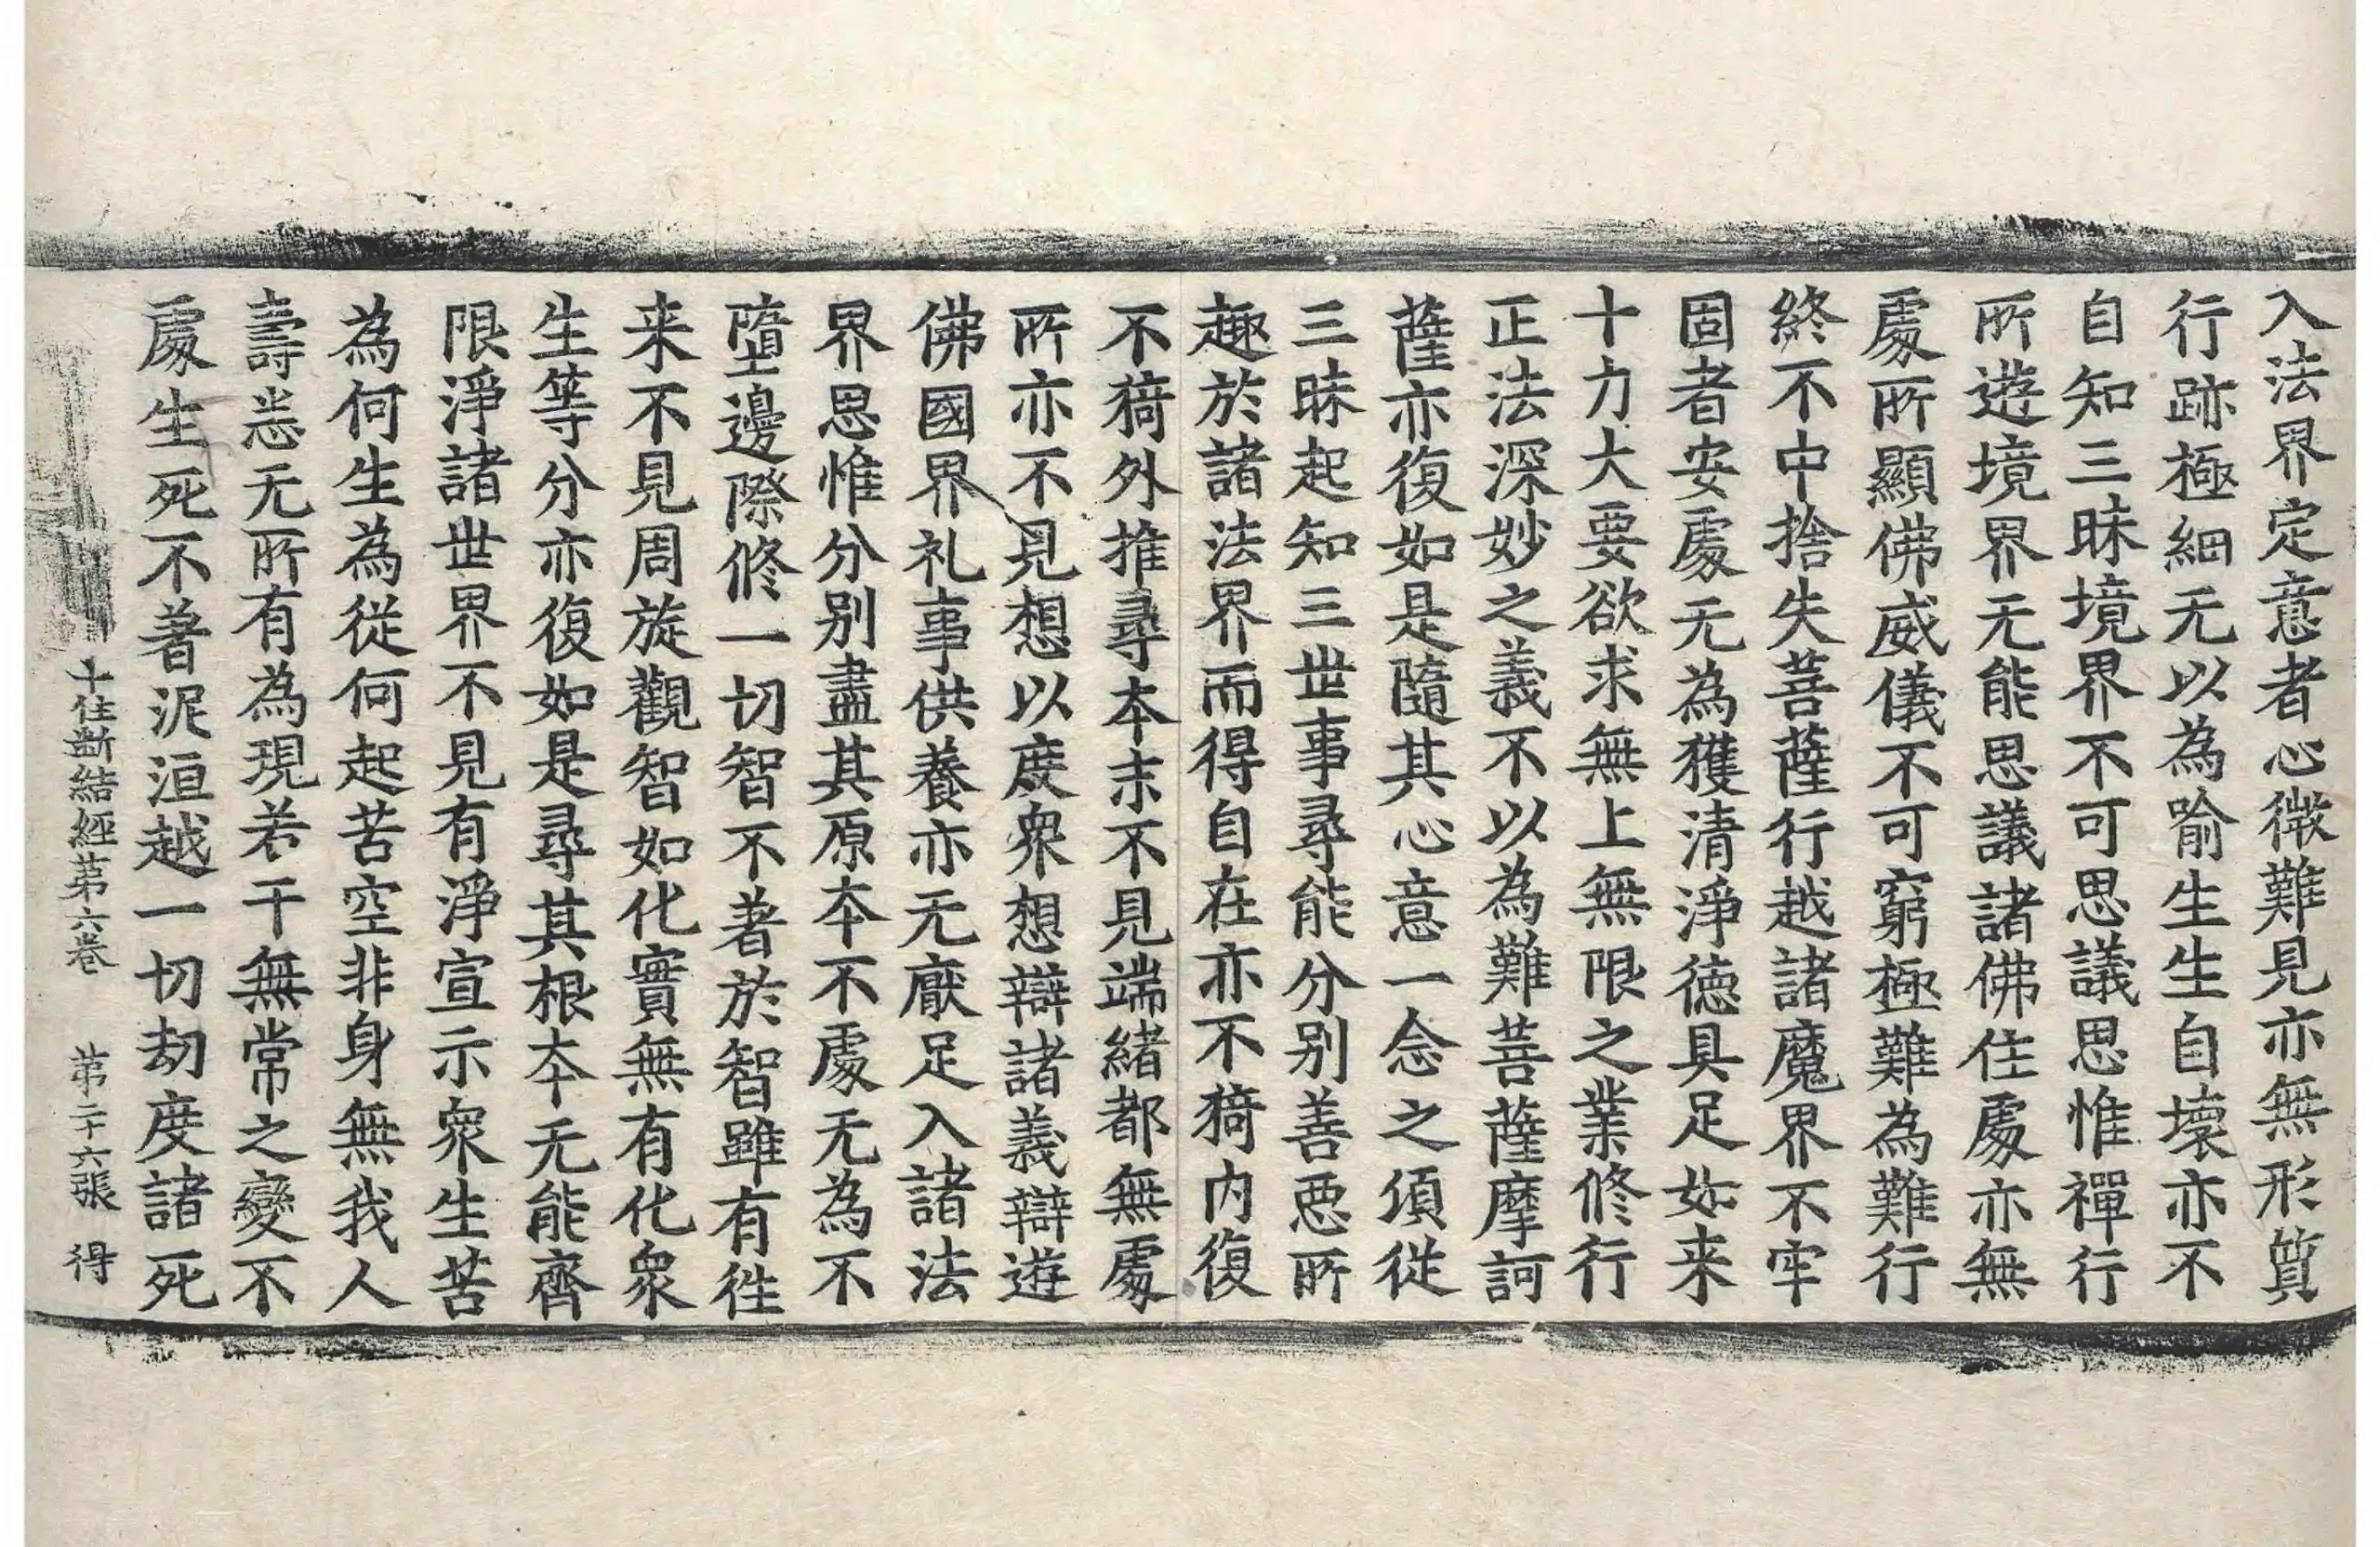 入法界定意者心微難見亦無形質
行跡極細无以為喻生生自壞亦不
自知三昧境界不可思議思惟禪行
所遊境界无能思議諸佛住處亦無
處所顯佛威儀不可窮極難為難行
終不中捨失菩薩行越諸魔界不牢
固者安處无為獲清淨德具足如来
十力大要欲求無上無限之業修行
正法深妙之義不以為難菩薩摩訶
薩亦復如是隨其心意一念之頃從
三昧起知三世事尋能分別善惡所
趣於諸法界而得自在亦不猗内復
不猗外推尋本末不見端緒都無處
所亦不見想以度衆想辯諸義辯遊
佛國界礼事供養亦无厭足入諸法
界思惟分別盡其原本不處无為不
墮邊際修一切智不著於智雖有往
来不見周旋觀智如化實無有化衆
生等分亦復如是尋其根本无能齊
限淨諸世界不見有淨宣示衆生苦
為何生為從何起苦空非身無我人
壽恙无所有為現若干無常之變不
處生死不著泥洹越一切劫度諸死
十住斷結經第六卷 第二十六張 得